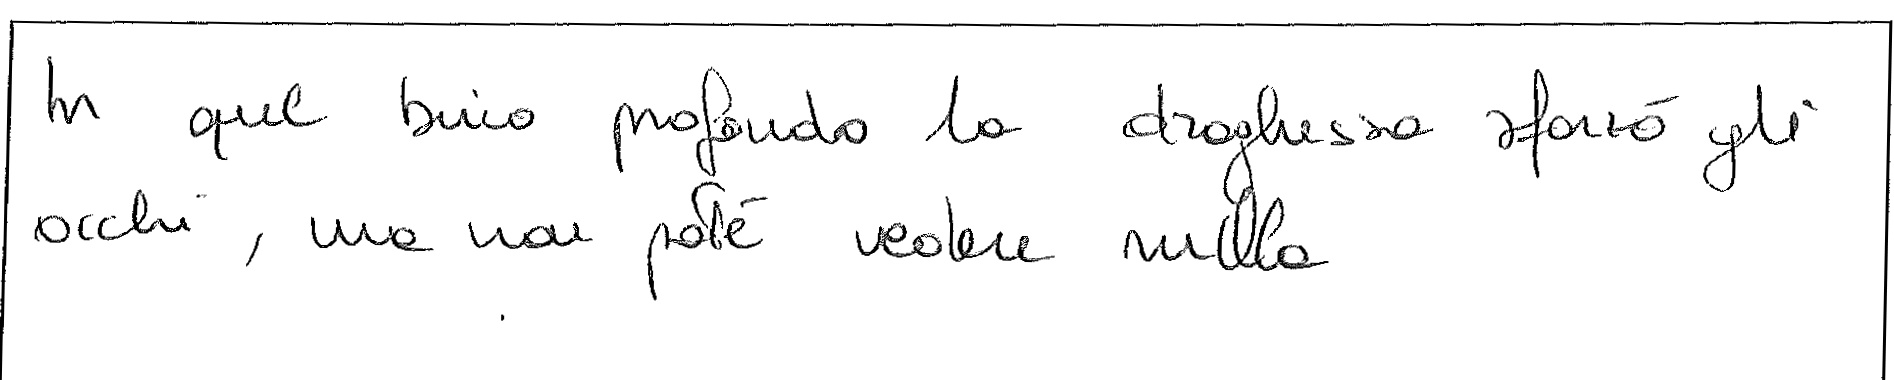 In quel buco profondo la draghessa sforzò gli
occhi, ma non poté vedere nulla